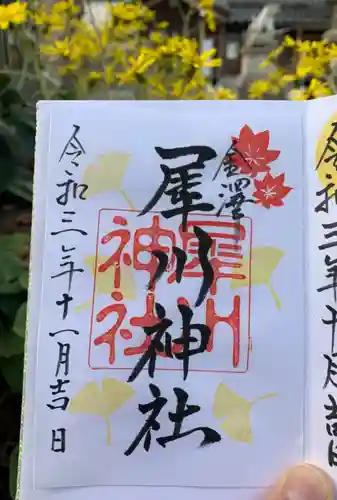 令和三年十月吉日
金沢
犀川神社
犀川
神社
令和三年十一月吉日